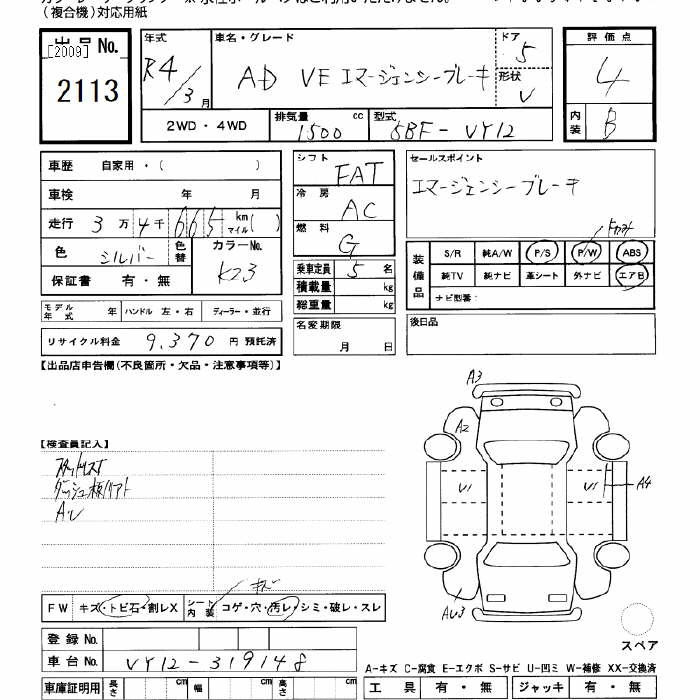 (複合機)対応用紙
出品No.
[2009]
2113
年式
R4/3月
車名・グレード
AD VE エマージェンシーブレーキ
ドア
5
形状
V
評価点
4
内装
B
2WD・4WD
排気量 1500 cc
型式 5BF-VY12
車歴 自家用・( )
車検 年 月
走行 3万4千665 km マイル( )
色 シルバー 色替
カラーNo. K23
保証書 有・無
モデル年式 年 ハンドル 左・右 ディーラー・並行
リサイクル料金 9,370 円 預託済
シフト FAT
冷房 AC
燃料 G
乗車定員 5 名
積載量 kg
総重量 kg
名変期限
月 日
セールスポイント
エマージェンシーブレーキ
装備品
S/R 純A/W P/S P/W ABS
純TV 純ナビ 革シート 外ナビ エアB
ナビ型番:
後日品
【出品店申告欄(不良箇所・欠品・注意事項等)】
【検査員記入】
AU
A3
A2
U1
U1
A4
AU3
FW キズ・トビ石・割レX シート内装 コゲ・穴・汚レ・シミ・破レ・スレ
キズ
登録No.
車台No. VY12-319148
スペア
A-キズ C-腐食 E-エクボ S-サビ U-凹ミ W-補修 XX-交換済
車庫証明用 長さ cm 幅 cm 高さ cm
工具 有・無 ジャッキ 有・無